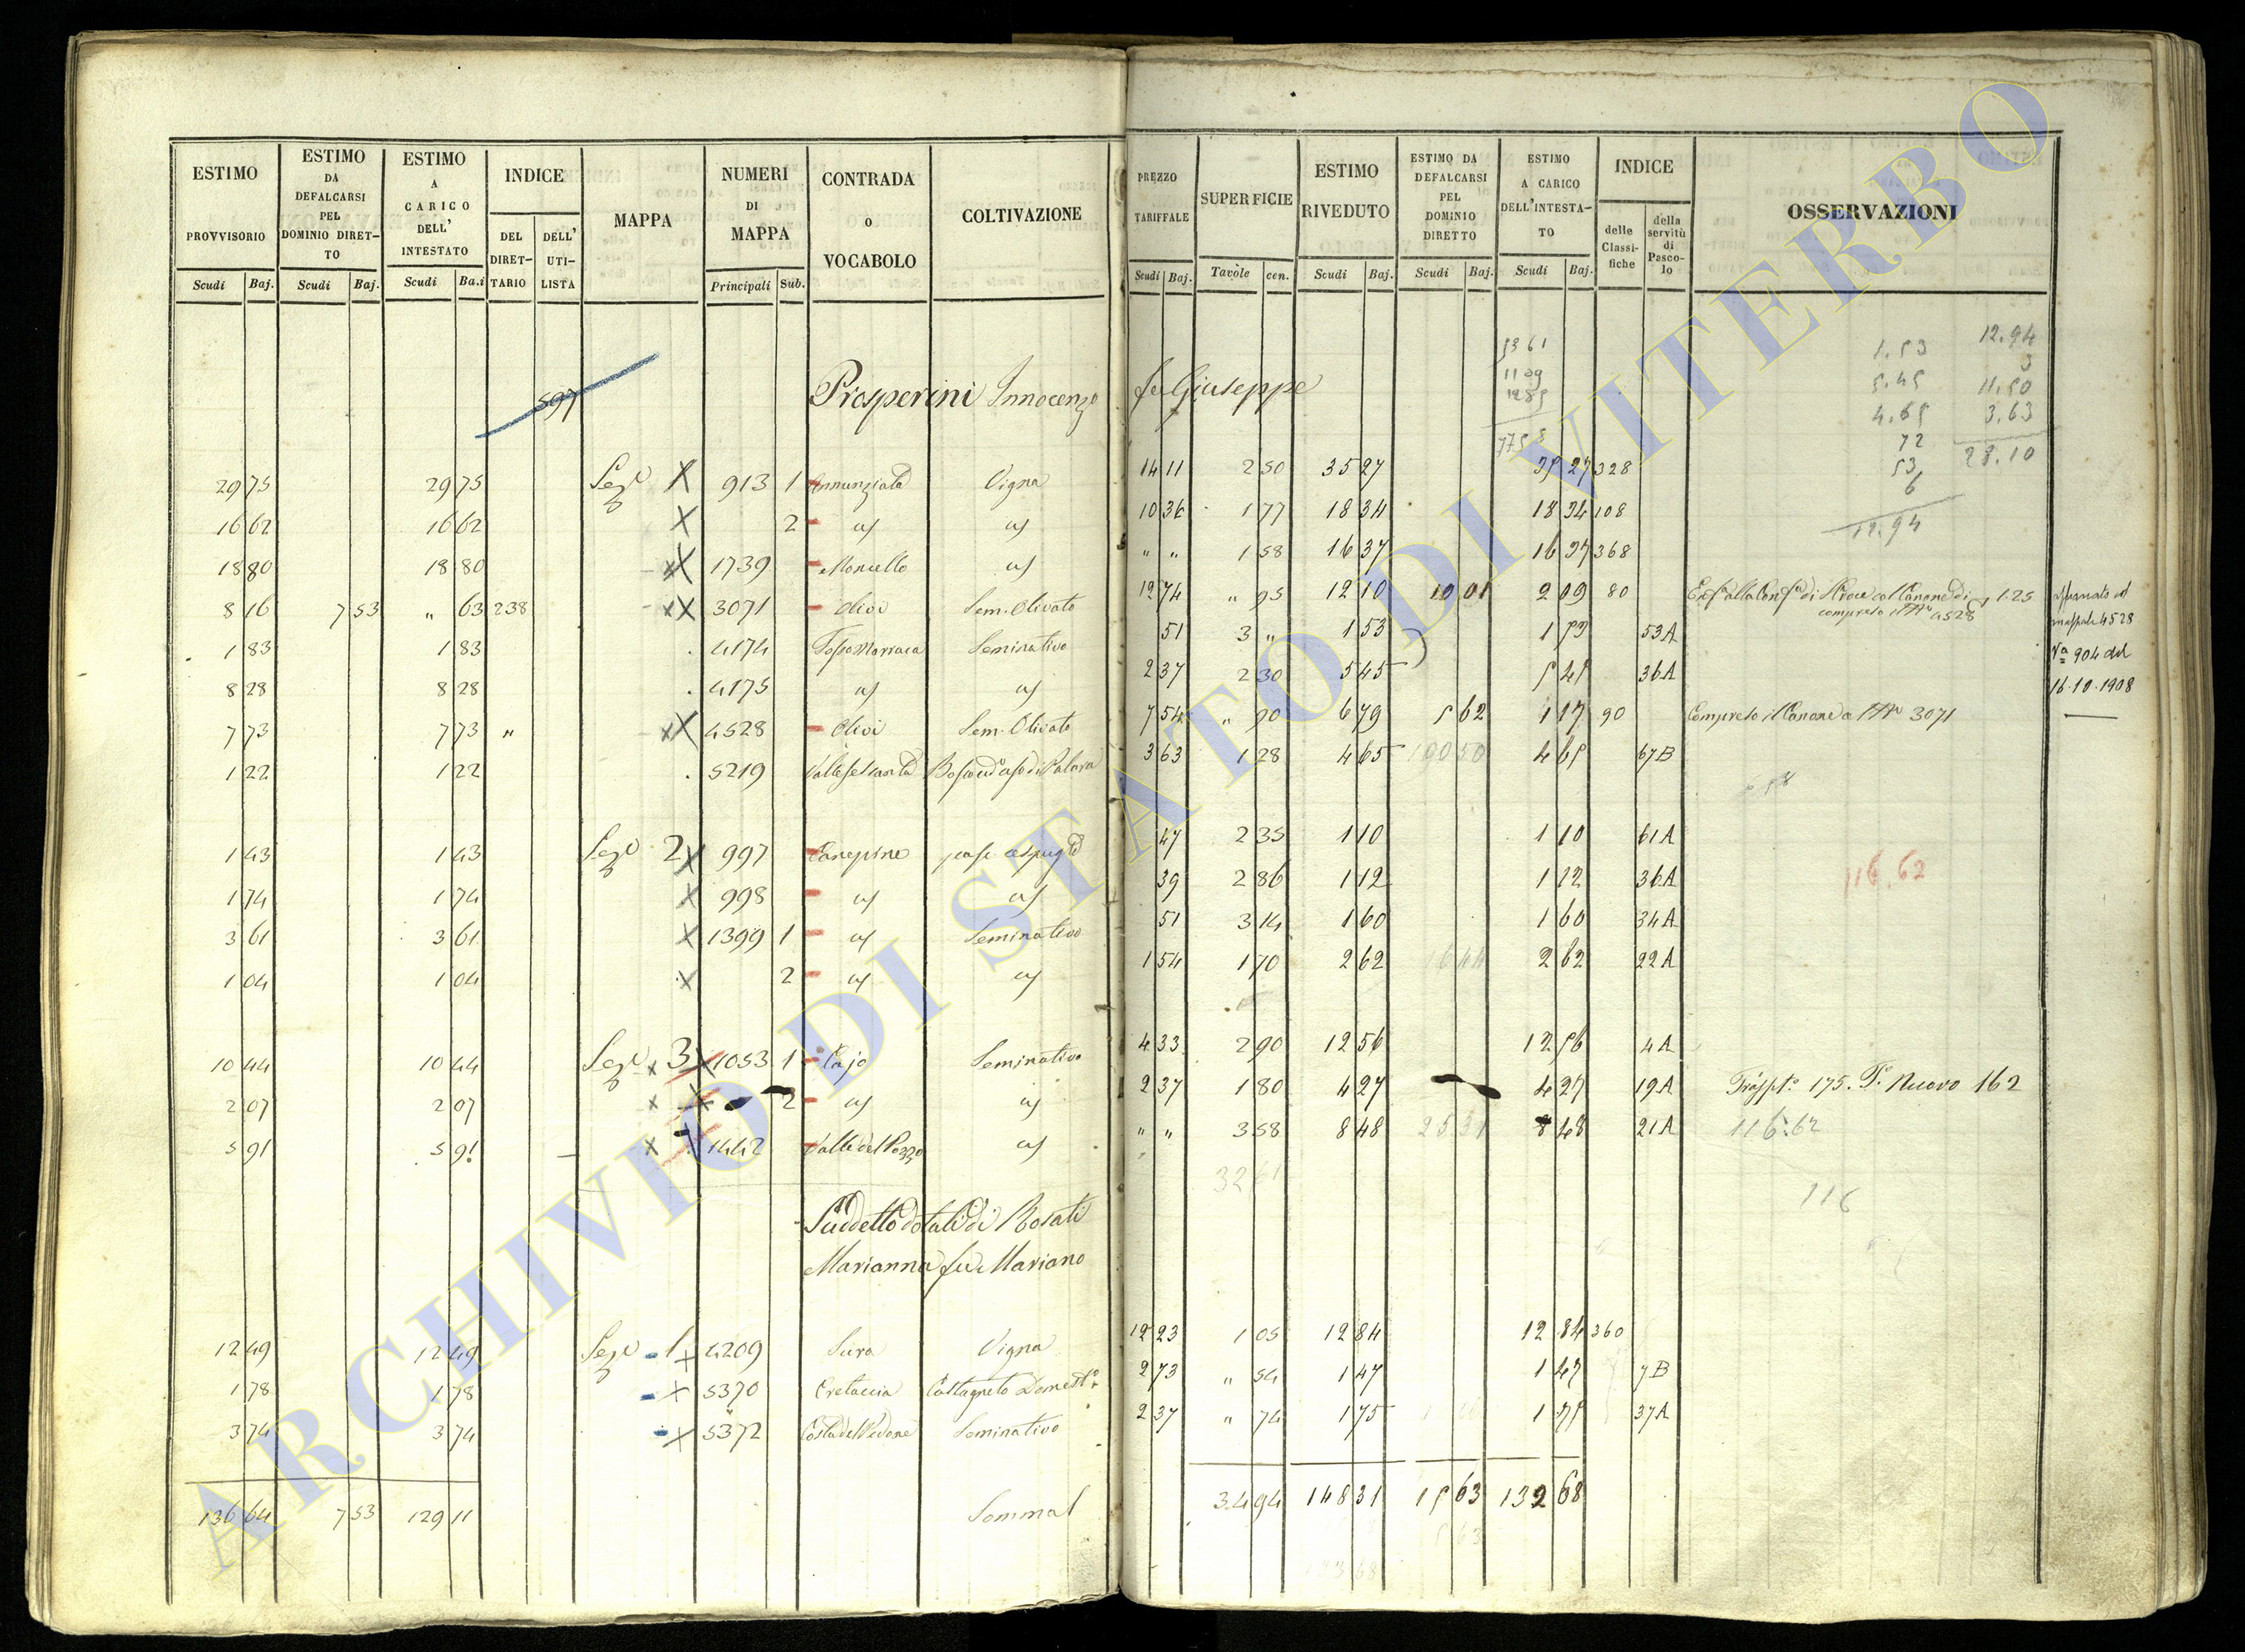 ESTIMO PROVVISORIO Scudi Baj. | ESTIMO DA DEFALCARSI PEL DOMINIO DIRET-TO Scudi Baj. | ESTIMO A CARICO DELL' INTESTATO Scudi Ba.i | INDICE DEL DIRET-TARIO DELL' UTI-LISTA | MAPPA | NUMERI DI MAPPA Principali Sub. | CONTRADA o VOCABOLO | COLTIVAZIONE | PREZZO TARIFFALE Scudi Baj. | SUPERFICIE Tavole cen. | ESTIMO RIVEDUTO Scudi Baj. | ESTIMO DA DEFALCARSI PEL DOMINIO DIRETTO Scudi Baj. | ESTIMO A CARICO DELL'INTESTA-TO Scudi Baj. | INDICE delle Classi-fiche della servitù di Pasco-lo | OSSERVAZIONI
597 Prosperini Innocenzo fu Giuseppe
29 75 29 75 Sez.e X 913 1 Annunziata Vigna 14 11 2 50 35 27 35 27 328
16 62 16 62 X 2 a/ a/ 10 36 1 77 18 34 18 34 108
18 80 18 80 X 1739 Moricello a/ " " 1 58 16 37 16 37 368
8 16 7 53 " 63 238 xX 3071 Olivi Sem. Olivato 12 74 " 95 12 10 10 01 2 09 80 col Canone di 1.25
compreso il N.o 4528
1 83 1 83 4174 Seminativo 51 3 " 1 53 1 53 53A mappale 4528
8 28 8 28 4175 a/ a/ 2 37 2 30 5 45 5 45 36A N.o 904 del
16.10.1908
7 73 7 73 " xX 4528 Olivi Sem. Olivato 7 54 " 90 6 79 5 62 1 17 90 Compreso il Canone a N.o 3071
1 22 1 22 5219 3 63 1 28 4 65 4 65 67B
1 43 1 43 Sez.e 2 X 997 Canepine 47 2 35 1 10 1 10 61A
1 74 1 74 X 998 a/ a/ 39 2 86 1 12 1 12 36A
3 61 3 61 X 1399 1 a/ Seminativo 51 3 14 1 60 1 60 34A
1 04 1 04 X 2 a/ a/ 1 54 1 70 2 62 2 62 22A
10 44 10 44 Sez.e x 3 X 1053 1 Cajo Seminativo 4 33 2 90 12 56 12 56 4A
2 07 2 07 x 2 a/ a/ 2 37 1 80 4 27 4 27 19A 175. Nuovo 162
5 91 5 91 x 1442 Valle del Pozzo a/ " " 3 58 8 48 8 48 21A
Suddetto dotali di Rosati
Marianna fu Mariano
12 49 12 49 Sez.e 1 x 4209 Sura Vigna 12 23 1 05 12 84 12 84 360
1 78 1 78 x 5370 Cretaccia Castagneto Domest.o 2 73 " 54 1 47 1 47 7B
3 74 3 74 x 5372 Seminativo 2 37 " 74 1 75 1 75 37A
136 64 7 53 129 11 Somma 34 94 148 31 15 63 132 68
12.94
1.53 3
5.45 11.50
4.65 3.63
72 28.10
53
6
12.94
116.62
116.62
116
ARCHIVIO DI STATO DI VITERBO